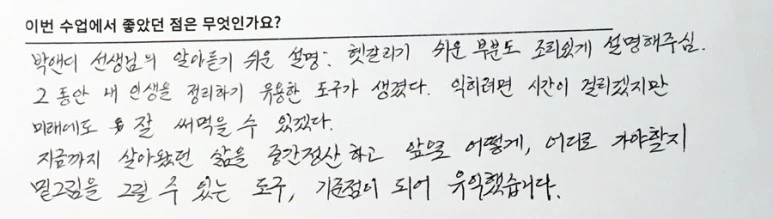 이번 수업에서 좋았던 점은 무엇인가요?
박앤디 선생님의 알아듣기 쉬운 설명: 헷갈리기 쉬운 부분도 조리있게 설명해주심.
그 동안 내 인생을 정리하기 유용한 도구가 생겼다. 익히려면 시간이 걸리겠지만
미래에도 잘 써먹을 수 있겠다.
지금까지 살아왔던 삶을 중간정산 하고 앞으로 어떻게, 어디로 가야할지
밑그림을 그릴 수 있는 도구, 기준점이 되어 유익했습니다.